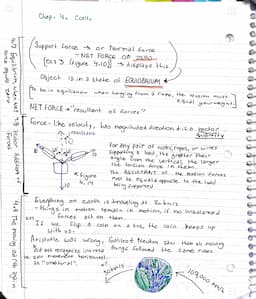 Chap. 4. Cont.
Support force → or Normal force
- NET FORCE OF ZERO
[Ex: 3 (Figure 4.10)] → displays this
Object is in a state of EQUILIBRIUM.
[To be in equilibrium when hanging from a rope, the tension must
equal your weight.]
NET FORCE → "resultant of forces"
Force - like velocity, has magnitude & direction & is a vector
quantity
resultant
For any pair of ropes, or wires
supporting a load, the greater their
angle from the vertical, the larger
the tension force in them.
The RESULTANT of the tension forces
must be equal & opposite to the load
being supported
Figure
Everything on earth is traveling at 30 km/s
- Things in motion remain in motion, if no unbalanced
forces act on them
If we flip a coin on a bus, the coin keeps up
with us.
Aristotle was wrong, Galileo & Newton saw that all moving
things followed the same rules
Did not recognize inertia
saw horizontal
as "unnatural".
30 km/s
4.7 Equilibrium
4.8 The moving